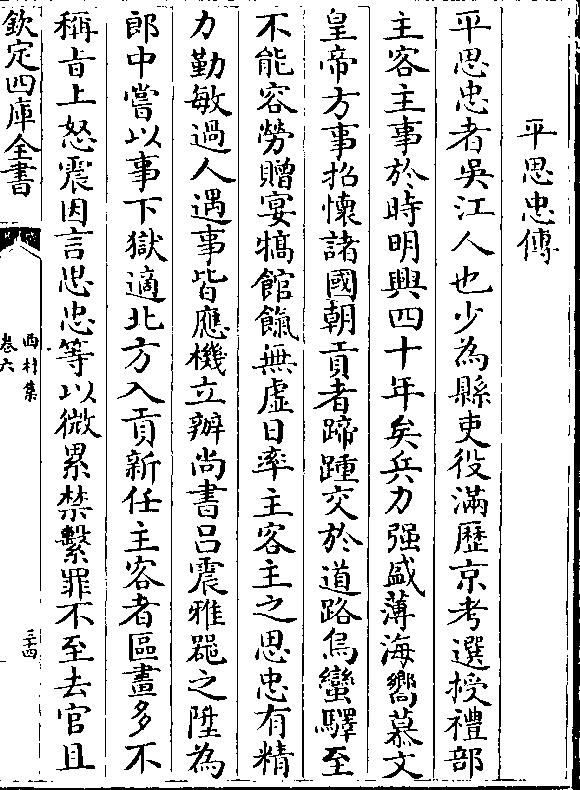 平思忠傳
平思忠者吳江人也少為縣吏役滿歴京考選授禮部
主客主事於時明興四十年矣兵力强盛薄海嚮慕文
皇帝方事招懷諸國朝貢者蹄踵交於道路烏蠻驛至
不能容勞贈宴犒館餼無虚日率主客主之思忠有精
力勤敏過人遇事皆應機立辦尚書吕震雅噐之陞為
郎中嘗以事下獄適北方入貢新任主客者區畫多不
稱旨上怒震因言思忠等以微累禁繫罪不至去官且
欽定四庫全書
西村集
卷六
三十四